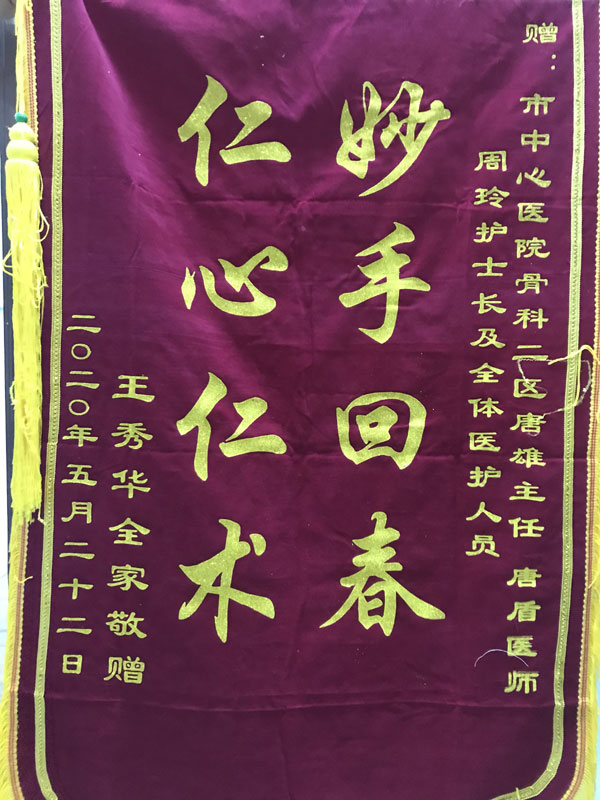 赠：市中心医院骨科二区唐雄主任 唐盾医师
周玲护士长及全体医护人员
妙手回春
仁心仁术
王秀华全家敬赠
二〇二〇年五月二十二日